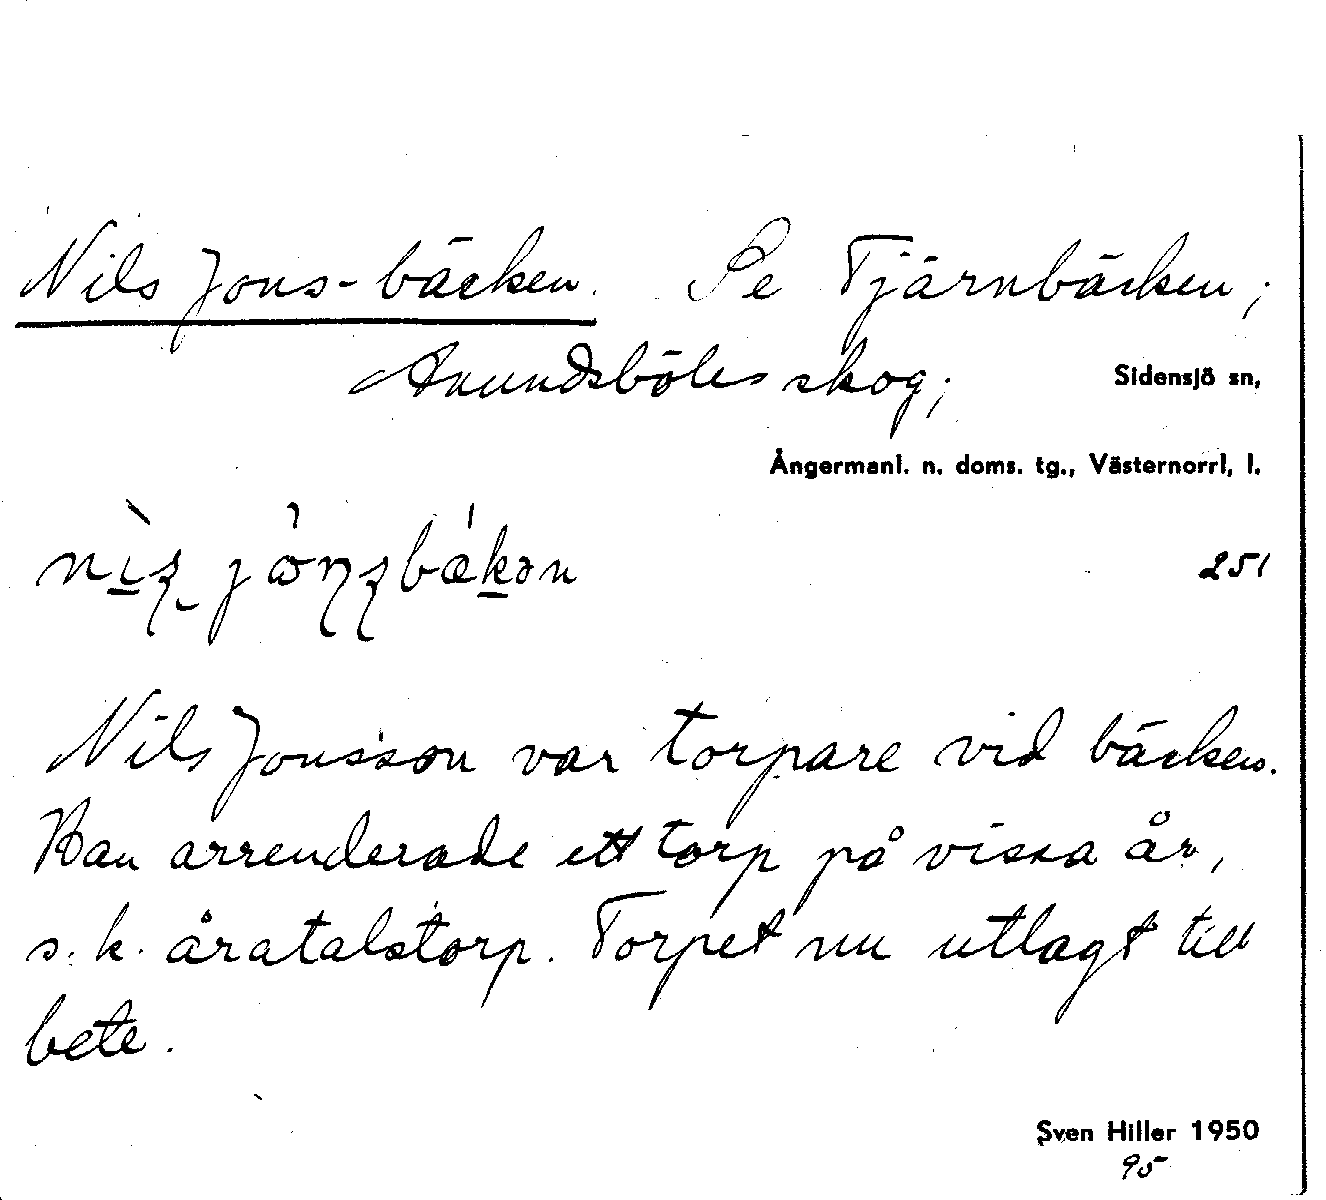 Nils Jons-bäcken. Se Tjärnbäcken;
Anundsböles skog;
Sidensjö sn,
Ångermanl. n. doms. tg., Västernorrl. l.
251
Nils Jonsson var torpare vid bäcken.
Han arrenderade ett torp på vissa år,
s.k. åratalstorp. Torpet nu utlagt till
bete.
Sven Hiller 1950
95